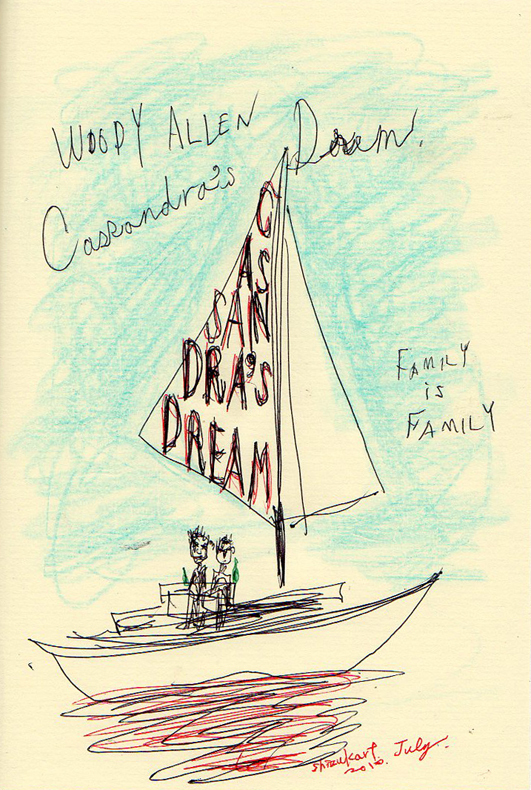 WOODY ALLEN
Cassandra's Dream.
C
AS
SAN
DRA'S
DREAM
FAMILY
is
FAMILY
July.
2010.